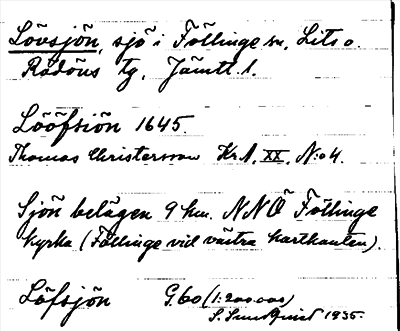 Lövsjön, sjö i Föllinge sn, Lits o.
Rödöns tg, Jämtl. l.
Lööfsiön 1645.
Thomas Christersson Kr.A. XX, N:o 4.
Sjön belägen 9 km. NNÖ Föllinge
kyrka (Föllinge vid västra kartkanten).
Löfsjön G.60 (1:200.000)
S. Sundquist 1935.